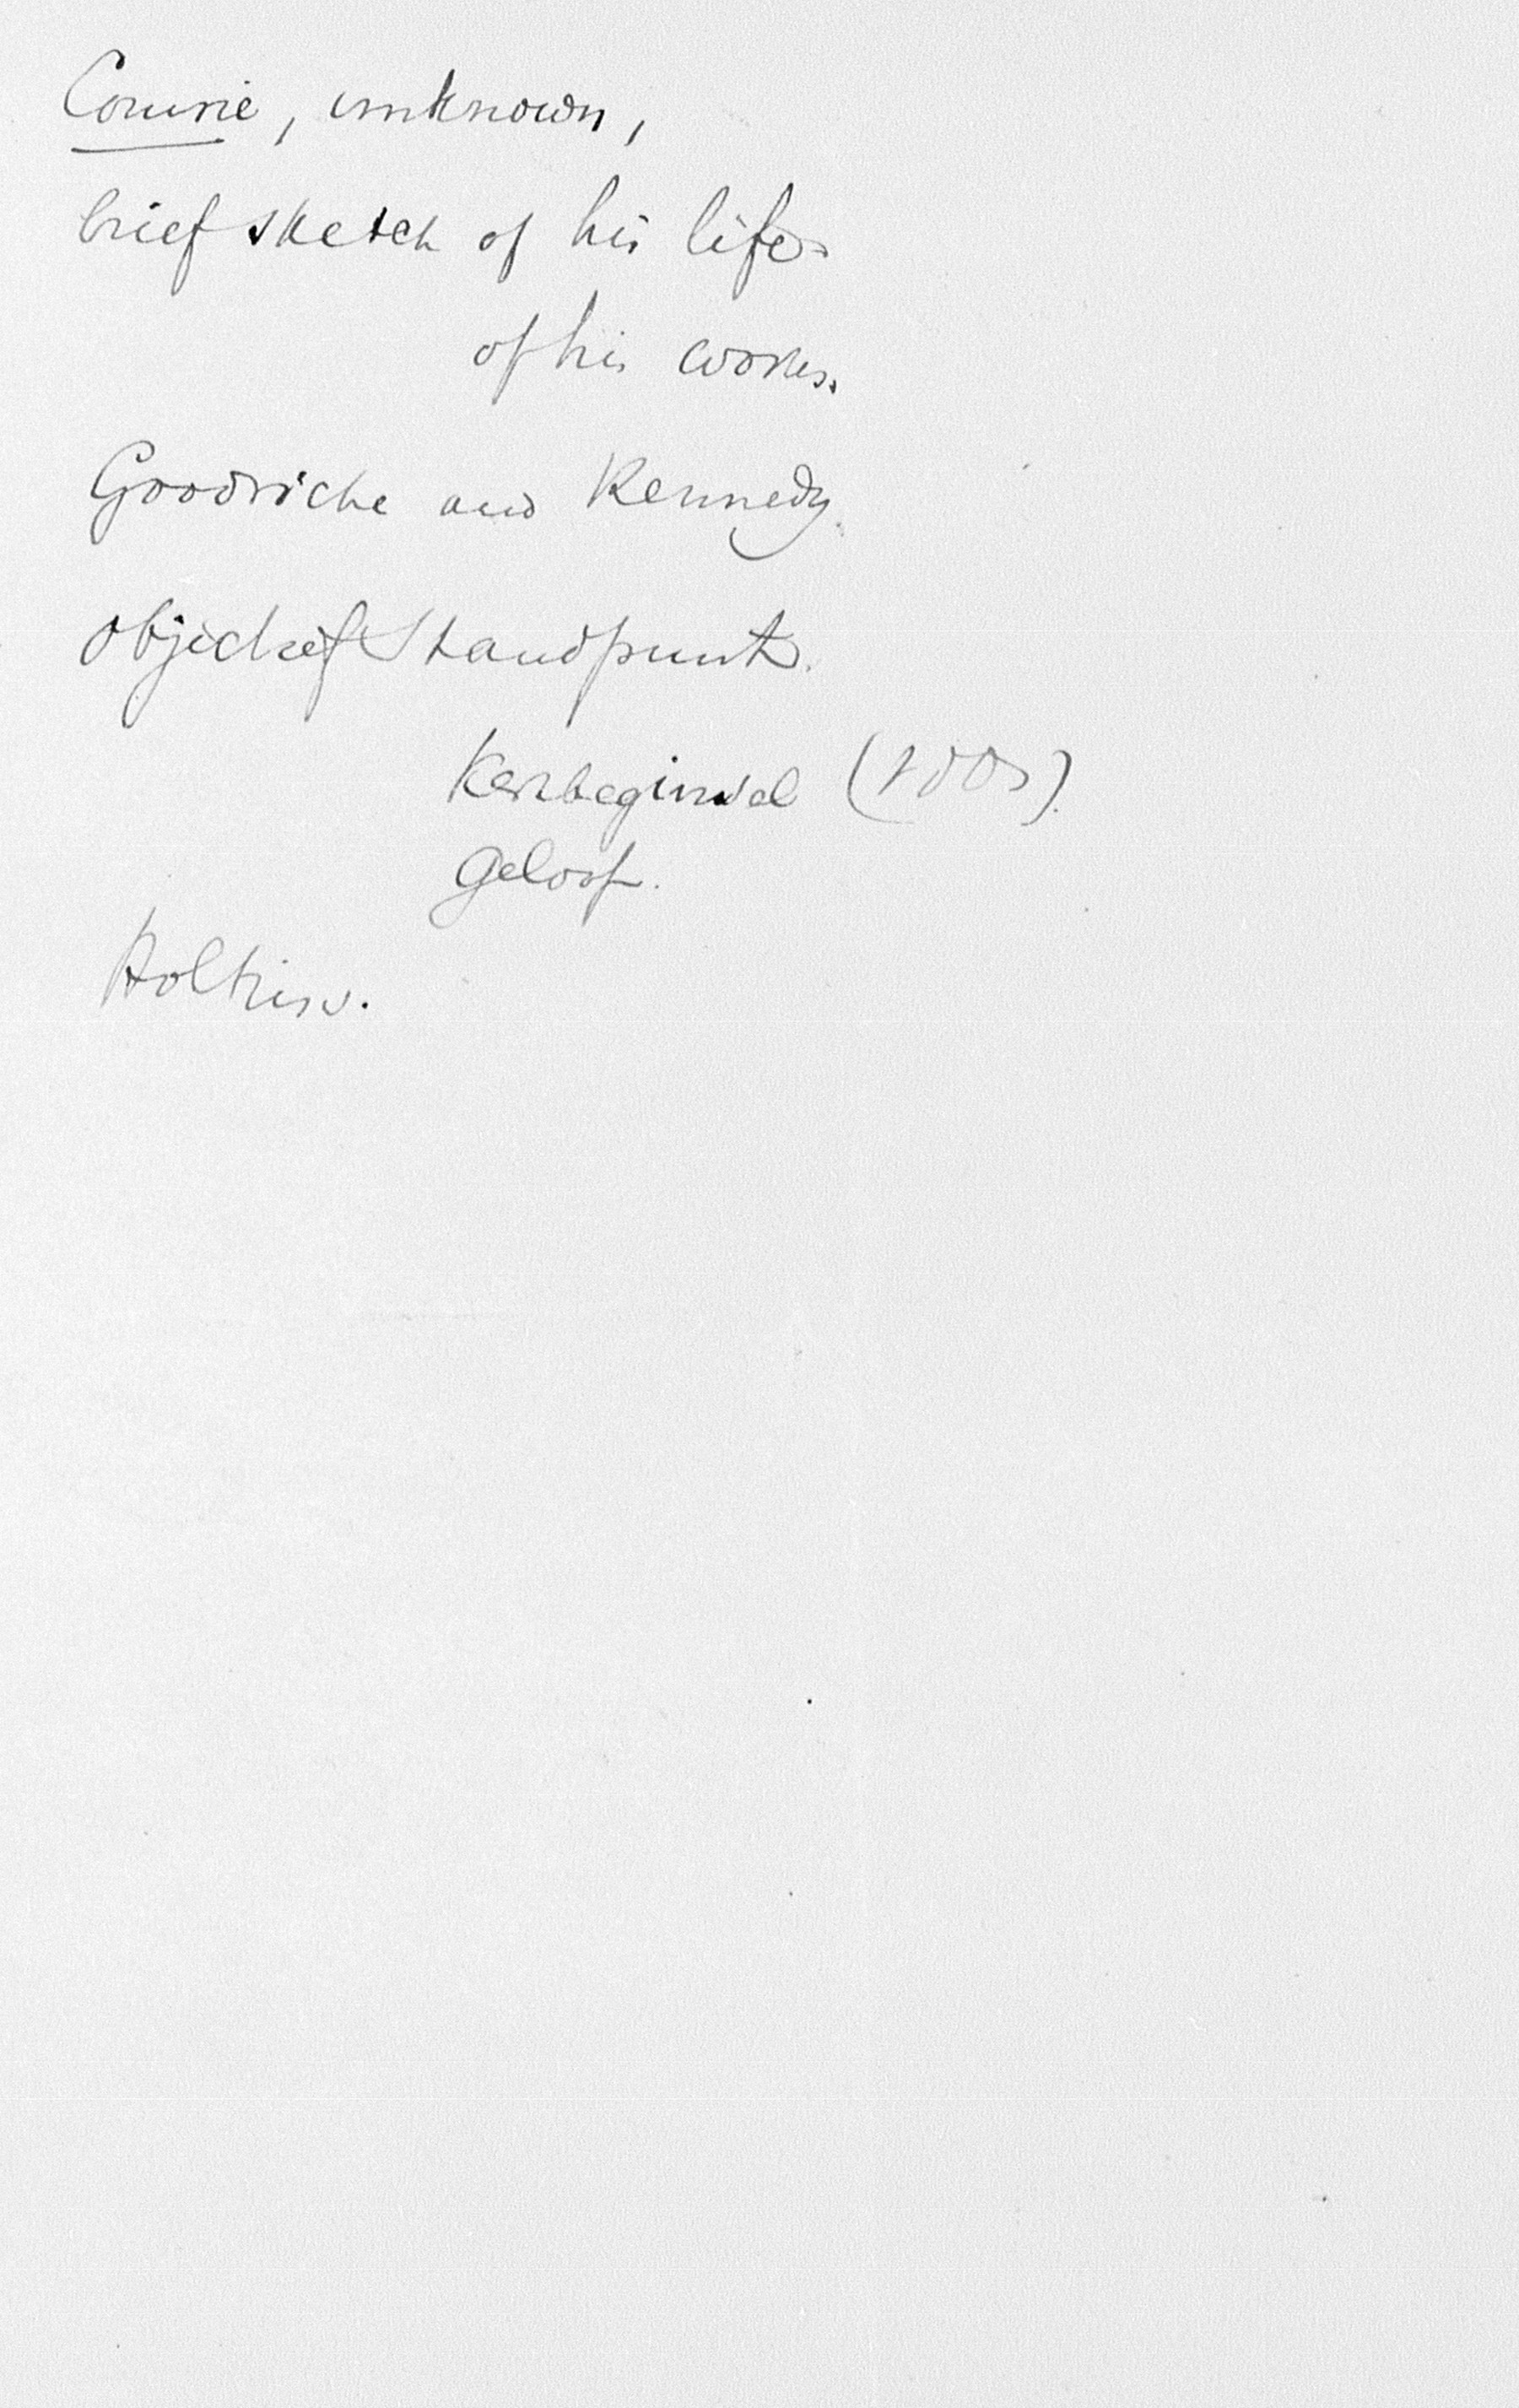 Comrie, unknown,
brief sketch of his life
of his works.
Goodricke and Kennedy.
objectief standpunt.
Kerkbeginsel
geloof.
Holtius.